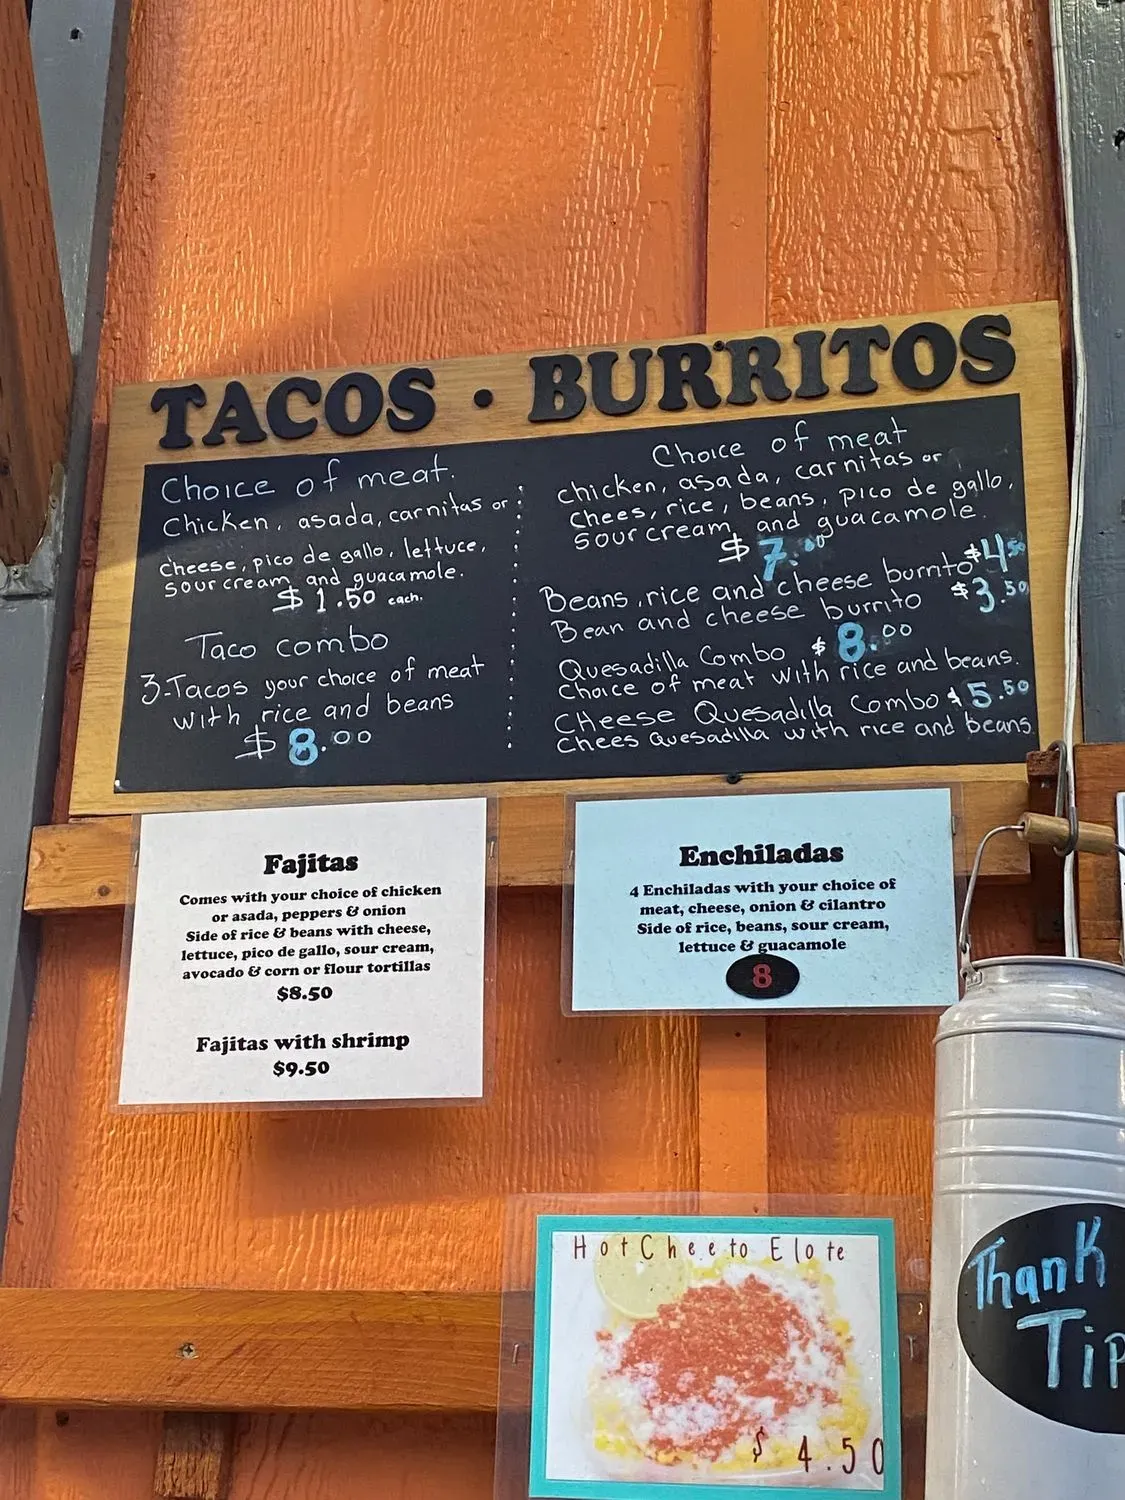 TACOS · BURRITOS
Choice of meat.
Chicken, asada, carnitas or
cheese, pico de gallo, lettuce,
sour cream and guacamole.
$1.50 each.
Taco combo
3-Tacos your choice of meat
with rice and beans
$8.00
Choice of meat
chicken, asada, carnitas or
chees, rice, beans, pico de gallo,
sour cream and guacamole.
$7.00
Beans, rice and cheese burrito $4.50
Bean and cheese burrito $3.50
Quesadilla Combo $8.00
Choice of meat with rice and beans.
CHEESE QUESADILLA Combo $5.50
Chees Quesadilla with rice and beans
Fajitas
Comes with your choice of chicken
or asada, peppers & onion
Side of rice & beans with cheese,
lettuce, pico de gallo, sour cream,
avocado & corn or flour tortillas
$8.50
Fajitas with shrimp
$9.50
Enchiladas
4 Enchiladas with your choice of
meat, cheese, onion & cilantro
Side of rice, beans, sour cream,
lettuce & guacamole
8
Hot Cheeto Elote
$4.50
Thank
Tip